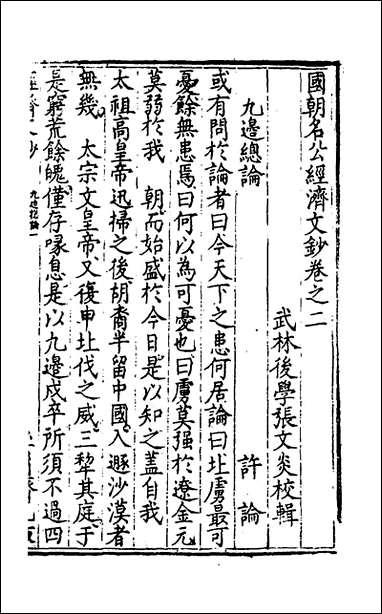 國朝名公經濟文鈔卷之二
武林後學張文炎校輯
九邊總論　許論
或有問於論者曰今天下之患何居論曰北虜最可
憂餘無患焉曰何以為可憂也曰虜莫强於遼金元
莫弱於我　朝而始盛於今日是以知之蓋自我
太祖高皇帝迅掃之後胡裔半留中國入遯沙漠者
無幾　太宗文皇帝又復申北伐之威三犂其庭于
是窮荒餘魄僅存喙息是以九邊戍卒所須不過四
九邊總論一